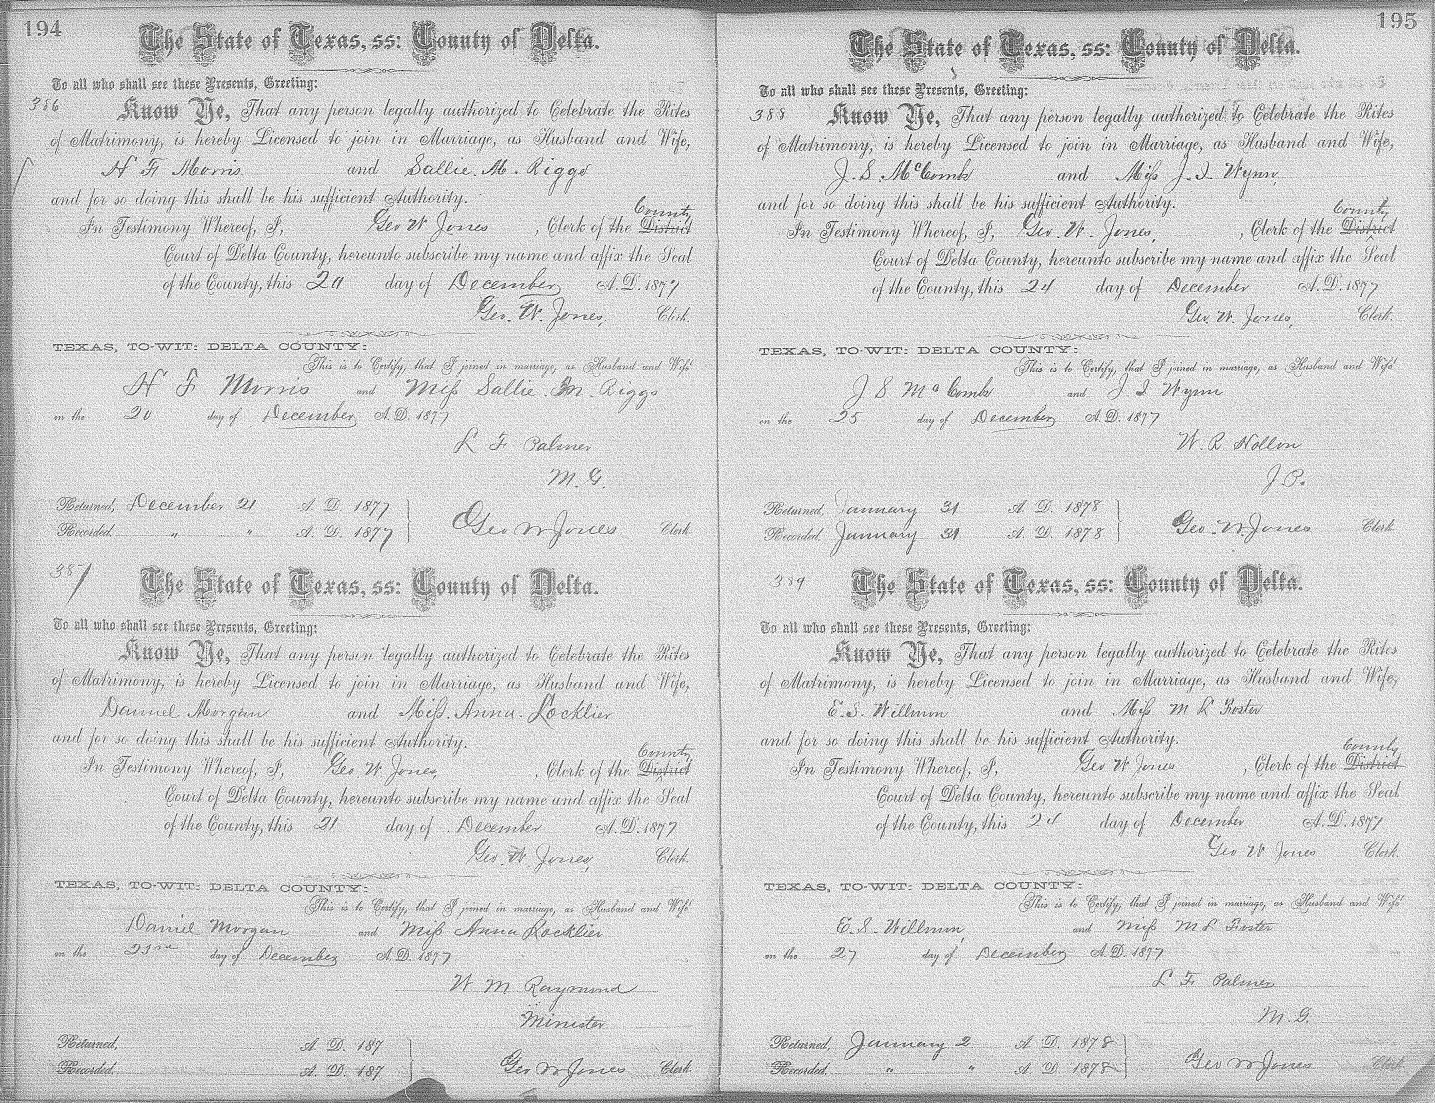 194
The State of Texas, ss: County of Delta.
To all who shall see these Presents, Greeting:
386
Know Ye, That any person legally authorized to Celebrate the Rites
of Matrimony, is hereby Licensed to join in Marriage, as Husband and Wife,
H F Morris and Sallie. M. Riggs
and for so doing this shall be his sufficient Authority.
County
In Testimony Whereof, I, Geo W Jones , Clerk of the District
Court of Delta County, hereunto subscribe my name and affix the Seal
of the County, this 20 day of December A.D. 1877
Geo. W. Jones, Clerk.
TEXAS, TO-WIT: DELTA COUNTY:
This is to Certify, that I joined in marriage, as Husband and Wife
H F Morris and Miss Sallie M. Riggs
on the 20 day of December A.D. 1877
L F Palmer
M. G.
Returned, December 21 A. D. 1877
Recorded " " A. D. 1877
Geo W Jones Clerk
387
The State of Texas, ss: County of Delta.
To all who shall see these Presents, Greeting:
Know Ye, That any person legally authorized to Celebrate the Rites
of Matrimony, is hereby Licensed to join in Marriage, as Husband and Wife,
Daniel Morgan and Miss. Anna. Locklier
and for so doing this shall be his sufficient Authority.
County
In Testimony Whereof, I, Geo W Jones , Clerk of the District
Court of Delta County, hereunto subscribe my name and affix the Seal
of the County, this 21 day of December A.D. 1877
Geo. W. Jones, Clerk.
TEXAS, TO-WIT: DELTA COUNTY:
This is to Certify, that I joined in marriage, as Husband and Wife
Daniel Morgan and Miss Anna Locklier
on the 23rd day of December A.D. 1877
W M Raymond
Minister
Returned, A. D. 187
Recorded A. D. 187
Geo W Jones Clerk
195
The State of Texas, ss: County of Delta.
To all who shall see these Presents, Greeting:
388
Know Ye, That any person legally authorized to Celebrate the Rites
of Matrimony, is hereby Licensed to join in Marriage, as Husband and Wife,
J. S. McCombs and Miss J. I. Wynn
and for so doing this shall be his sufficient Authority.
County
In Testimony Whereof, I, Geo. W. Jones, , Clerk of the District
Court of Delta County, hereunto subscribe my name and affix the Seal
of the County, this 24 day of December A.D. 1877
Geo. W. Jones, Clerk.
TEXAS, TO-WIT: DELTA COUNTY:
This is to Certify, that I joined in marriage, as Husband and Wife
J S McCombs and J I Wynn
on the 25 day of December A.D. 1877
W. R. Hollon
J. P.
Returned, January 31 A. D. 1878
Recorded January 31 A. D. 1878
Geo. W. Jones Clerk
389
The State of Texas, ss: County of Delta.
To all who shall see these Presents, Greeting:
Know Ye, That any person legally authorized to Celebrate the Rites
of Matrimony, is hereby Licensed to join in Marriage, as Husband and Wife,
E. S. Willman and Miss M L Foster
and for so doing this shall be his sufficient Authority.
County
In Testimony Whereof, I, Geo W Jones , Clerk of the District
Court of Delta County, hereunto subscribe my name and affix the Seal
of the County, this 24 day of December A.D. 1877
Geo W Jones Clerk.
TEXAS, TO-WIT: DELTA COUNTY:
This is to Certify, that I joined in marriage, as Husband and Wife
E. S. Willman, and Miss M L Foster
on the 27 day of December A.D. 1877
L F Palmer
M. G.
Returned, January 2 A. D. 1878
Recorded " " A. D. 1878
Geo W Jones Clerk